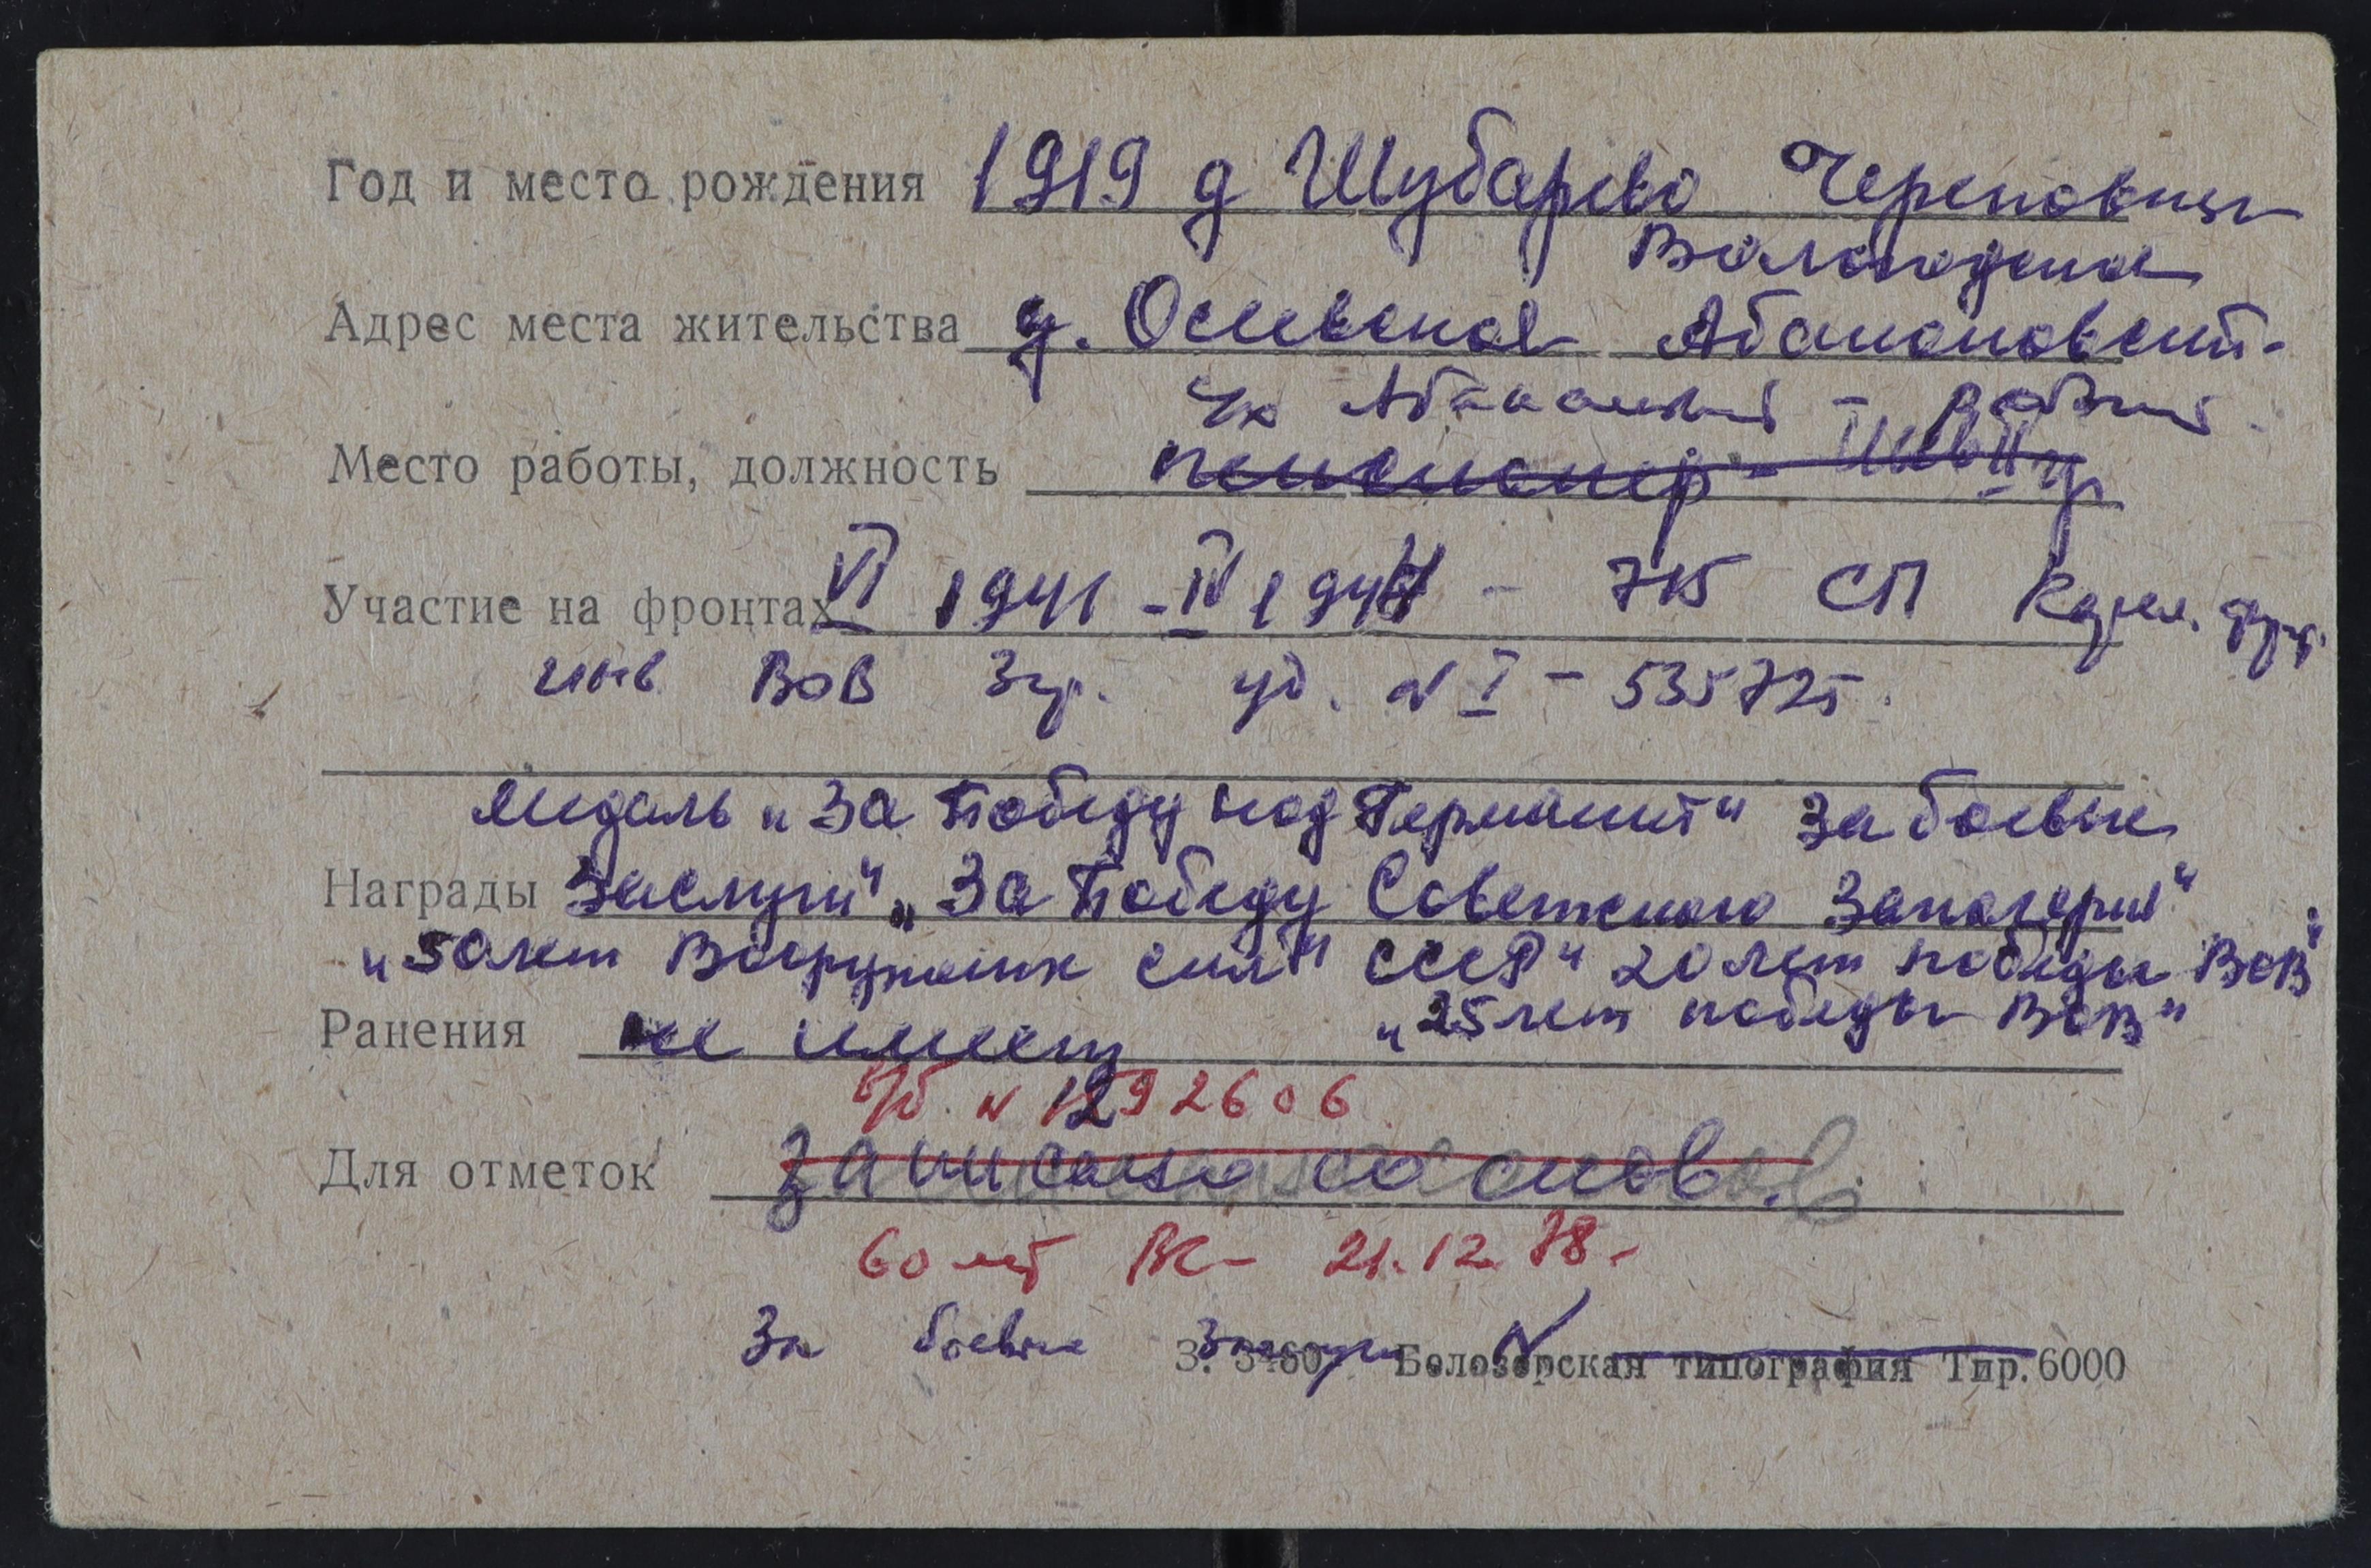 Год и место рождения 1919 д Шубарево Череповец
Вологодская
Адрес места жительства д. Осиевская Абакановский-
с/х Абакановский - рабочий
Место работы, должность пенсионер - инв II гр
Участие на фронтах VI 1941 - IV 1944 - 715 СП Карел. фр.
инв ВОВ 3 гр. уд. № I - 535725.
медаль „За Победу над Германией" За боевые
Награды Заслуги" „За Победу Советского Заполярия"
„50 лет Вооружених сил" СССР" 20 лет победы ВОВ"
„25 лет победы ВОВ"
Ранения не имеет
Уд. № 1292606
Для отметок Записано со слов.
60 лет ВС- 21.12.78-
За боевые Заслуги
З. 3460 Белозерская типография Тир. 6000